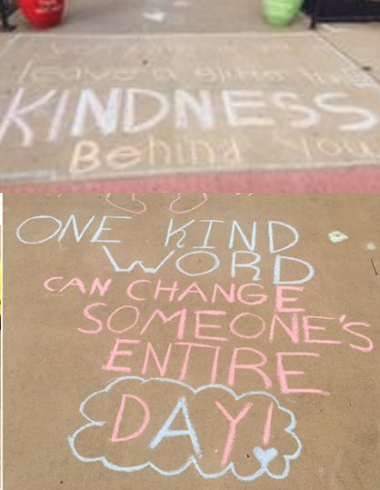 leave a
KINDNESS
Behind You
ONE KIND
WORD
CAN CHANGE
SOMEONE'S
ENTIRE
DAY!